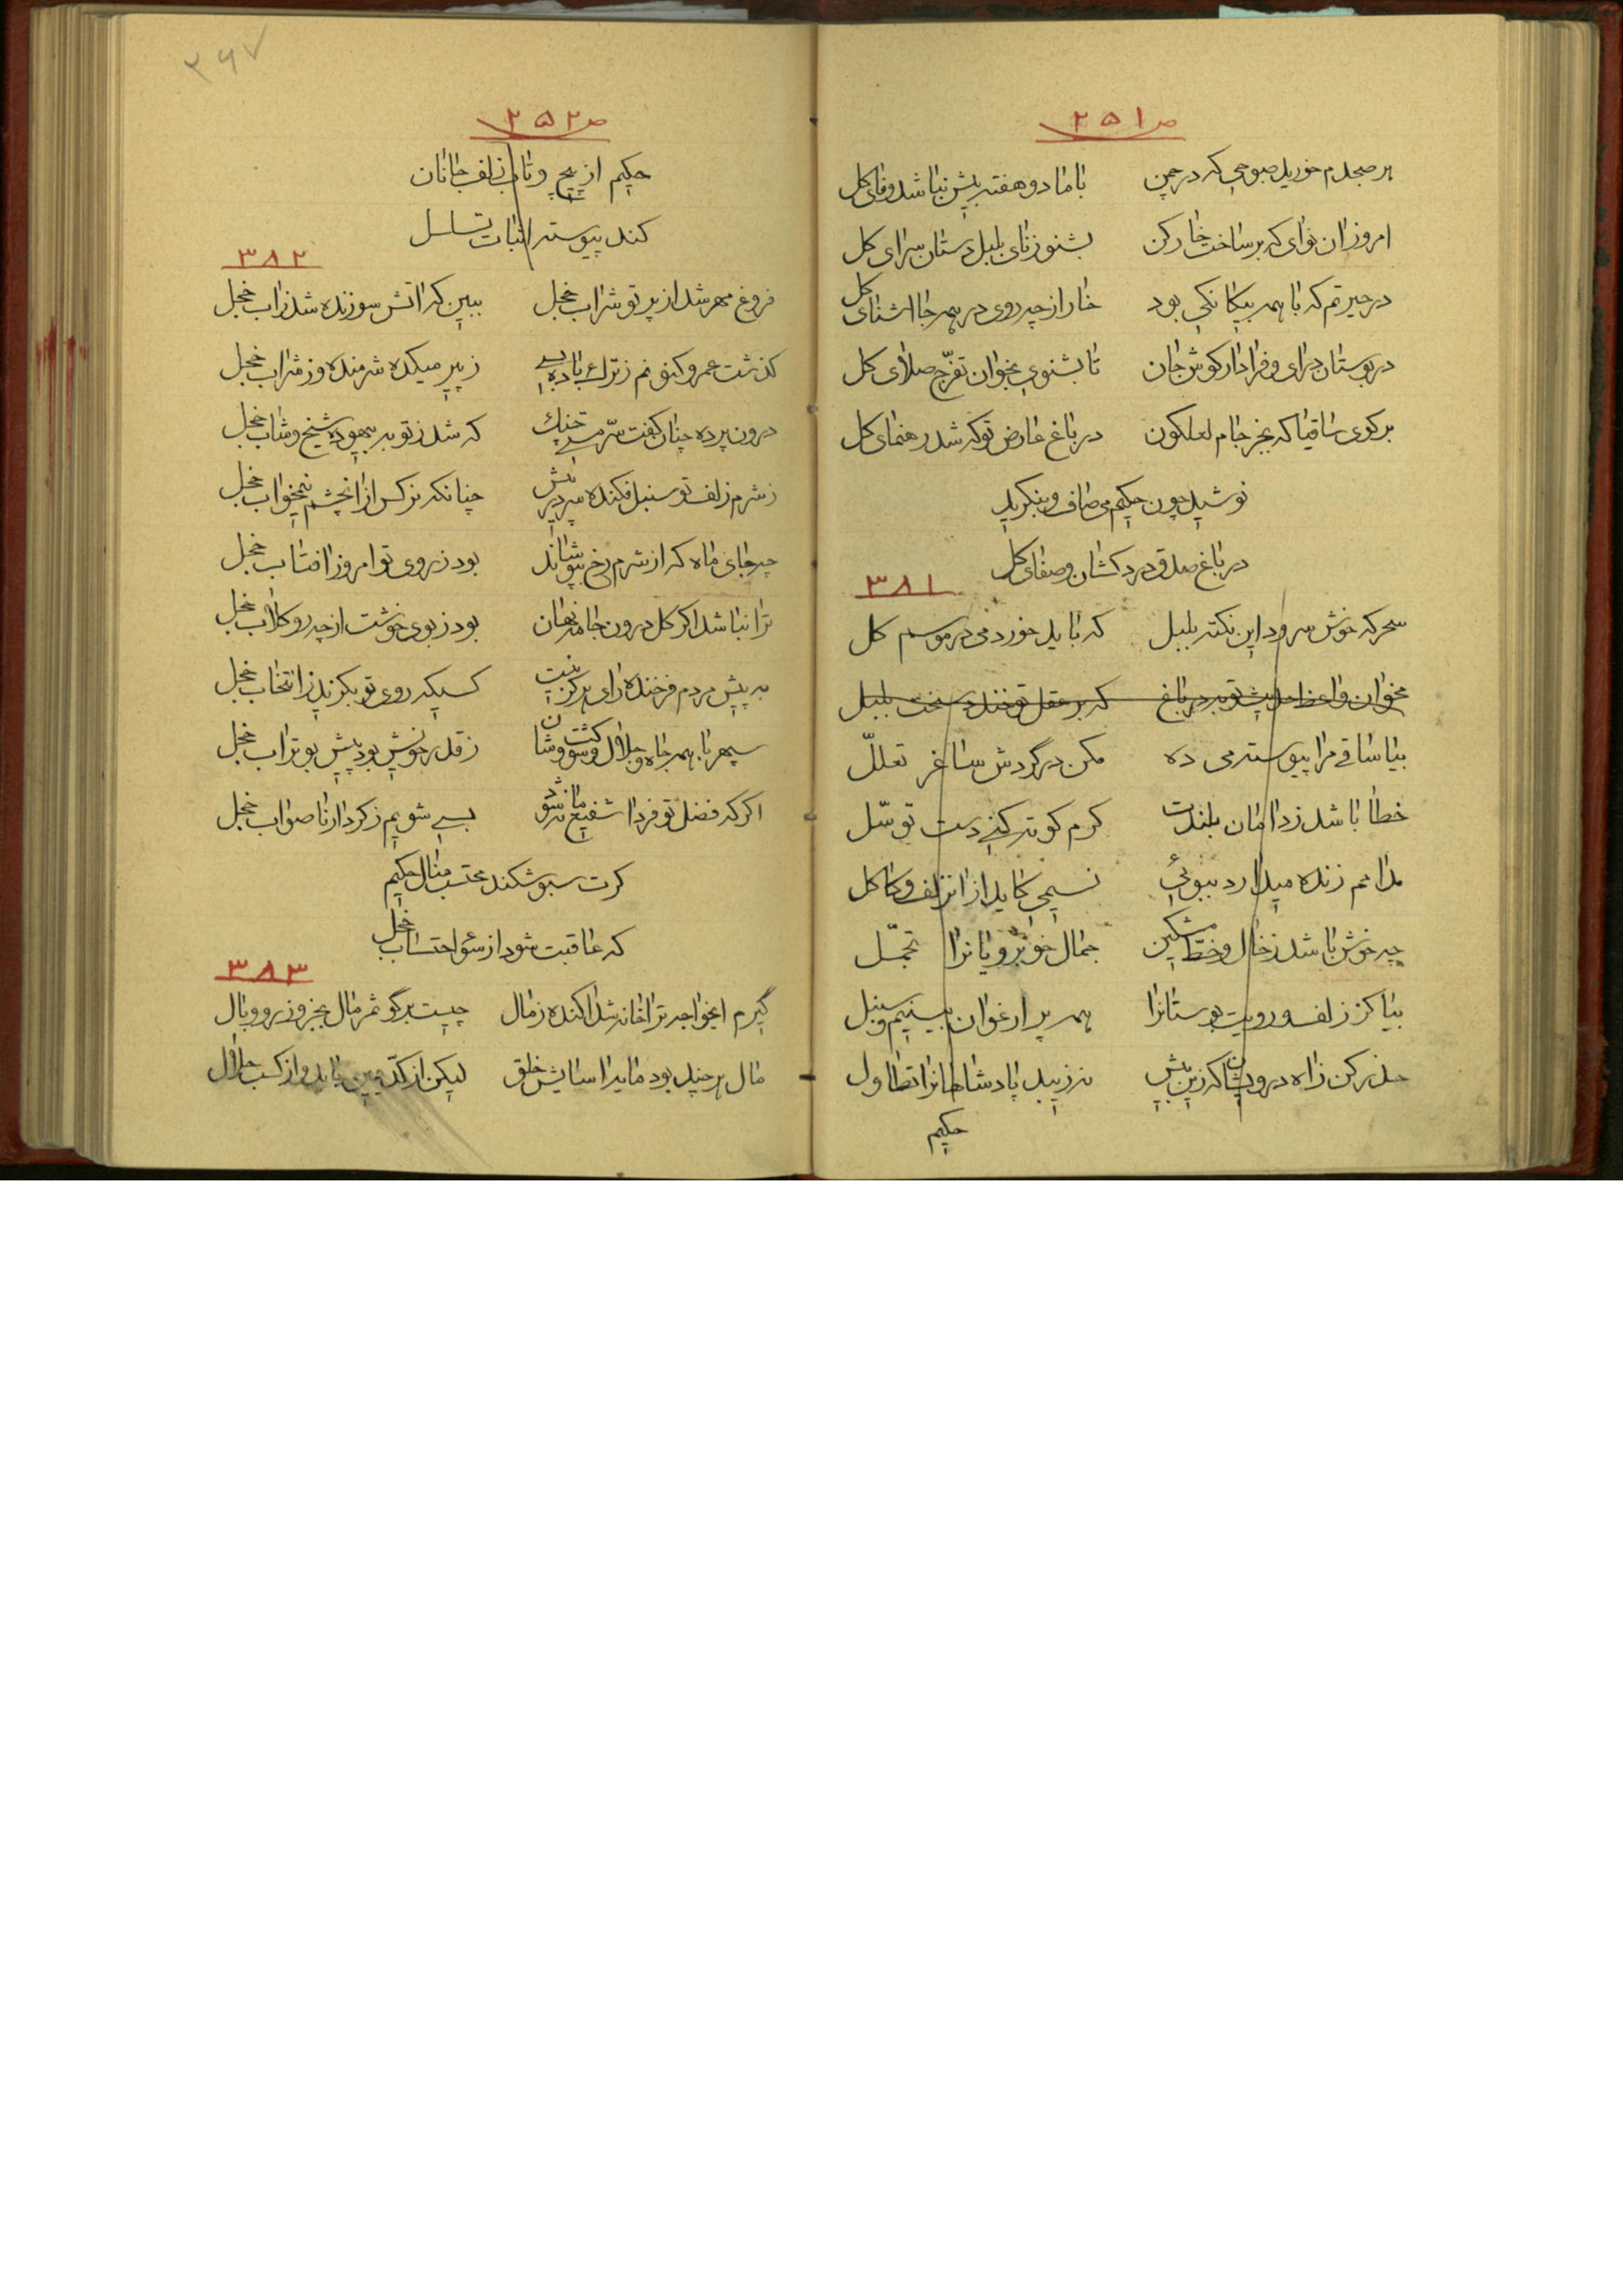 ص ۲۵۱
هر صبحدم خورید صبوحی که در چمن با ما دو هفته بیش نباشد وفای کل
امروز ان نوای که بر ساخت خارکن بشنو ز نای بلبل دستان سرای کل
در حیرتم که با همه بیکانکی بود خار از چه روی در همه جا اشنای کل
در بوستان درای و فرا دار کوش جان تا بشنوی بخوان تفرّج صلای کل
بر کوی ساقیا که بجز جام لعلکون در باغ عارض تو که شد رهنمای کل
نوشید چون حکیم می صاف و بنکرید
در باغ صدق درد کشان و صفای کل
۳۸۱
سحرکه خوش سرود این نکته بلبل که باید خورد می در موسم کل
مخوان واعظ حدیث توبه در باغ که بر عقل تو خندد سخت بلبل
بیا ساقی مرا پیوسته می ده مکن در گردش ساغر تعللّ
خطا باشد ز دامان بلندت کرم کوته کنی دست توسّل
مدامم زنده میدارد ببوئی نسیمی کاید از انزلف و کاکل
چه خوش باشد ز خال و خطّ مشکین جمال خوبرویانرا تجمّل
بیا کز زلف و رویت بوستانرا همه پر ارغوان بینیم و سنبل
حذر کن ز اه درویشان که زین بیش نه زیبد پادشاهانرا تطاول
حکیم
۲۶۷
ص ۲۵۲
حکیم از پیچ و تاب زلف جانان
کند پیوسته اثبات تسلسل
۳۸۲
فروغ مهر شد از پرتو شراب خجل ببین که اتش سوزنده شد ز اب خجل
کذشت عمر و کنونم ز ترك باده بسی ز پیر میکده شرمنده وز شراب خجل
درون پرده چنان کفت سرّ مستی چنك که شد ز توبه بیهوده شیخ و شاب خجل
ز شرم زلف تو سنبل فکنده سر در پیش چنانکه نرکس از انچشم نیمخواب خجل
چه جای ماه که از شرم رخ بپوشاند بود ز روی تو امروز افتاب خجل
ترا نباشد اکر کل درون جامه نهان بود ز بوی خوشت از چه رو کلاب خجل
به پیش مردم فرخنده رای هرکز نیست کسیکه روی تو بکزید ز انتخاب خجل
سپهر با همه جاه و جلال و شوکت و شان ز قدر خویش بود پیش بوتراب خجل
اکر که فضل تو فردا شفیع ما نشود بسی شویم ز کردار ناصواب خجل
کرت سبو شکند محتسب منال حکیم
که عاقبت شود از سوٴ احتساب خجل
۳۸۳
گیرم ایخواجه ترا خانه شد اکنده ز مال چیست بر گو ثمر مال بجز وزر و وبال
مال هر چند بود مایه اسایش خلق لیکن از کدّ یمین باید و از کسب حلال